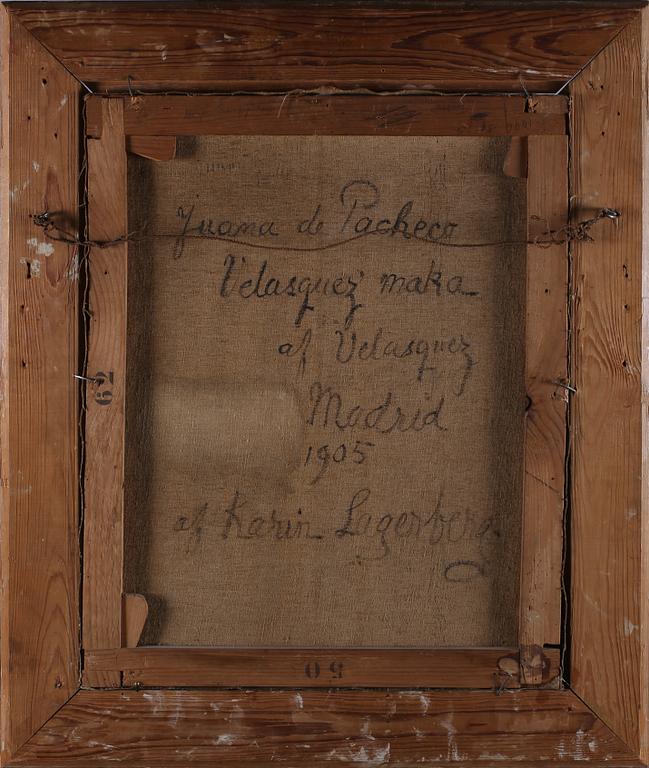 Juana de Pacheco
Velasquez maka
af Velasquez
Madrid
1905
af Karin Lagerberg.
62
50